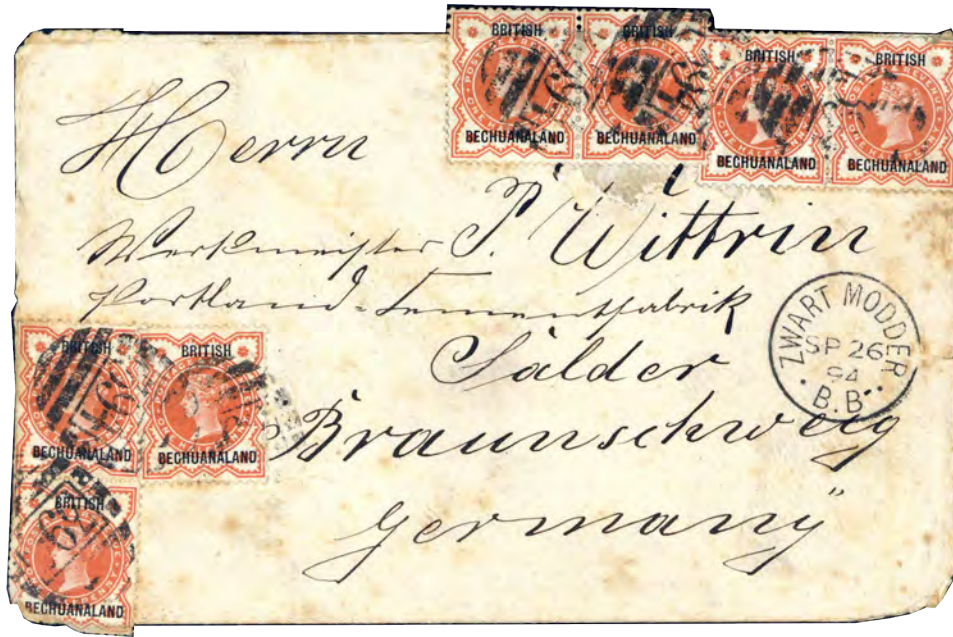 BRITISH BRITISH
BECHUANALAND BECHUANALAND
BRITISH BRITISH
BECHUANALAND BECHUANALAND
Herrn
Werkmeister P. Wittrin
Portland-Cementfabrik
Sälder
Braunschweig
Germany
ZWART MODDER
SP 26
94
B.B.
BRITISH BRITISH
BECHUANALAND BECHUANALAND
BRITISH
BECHUANALAND